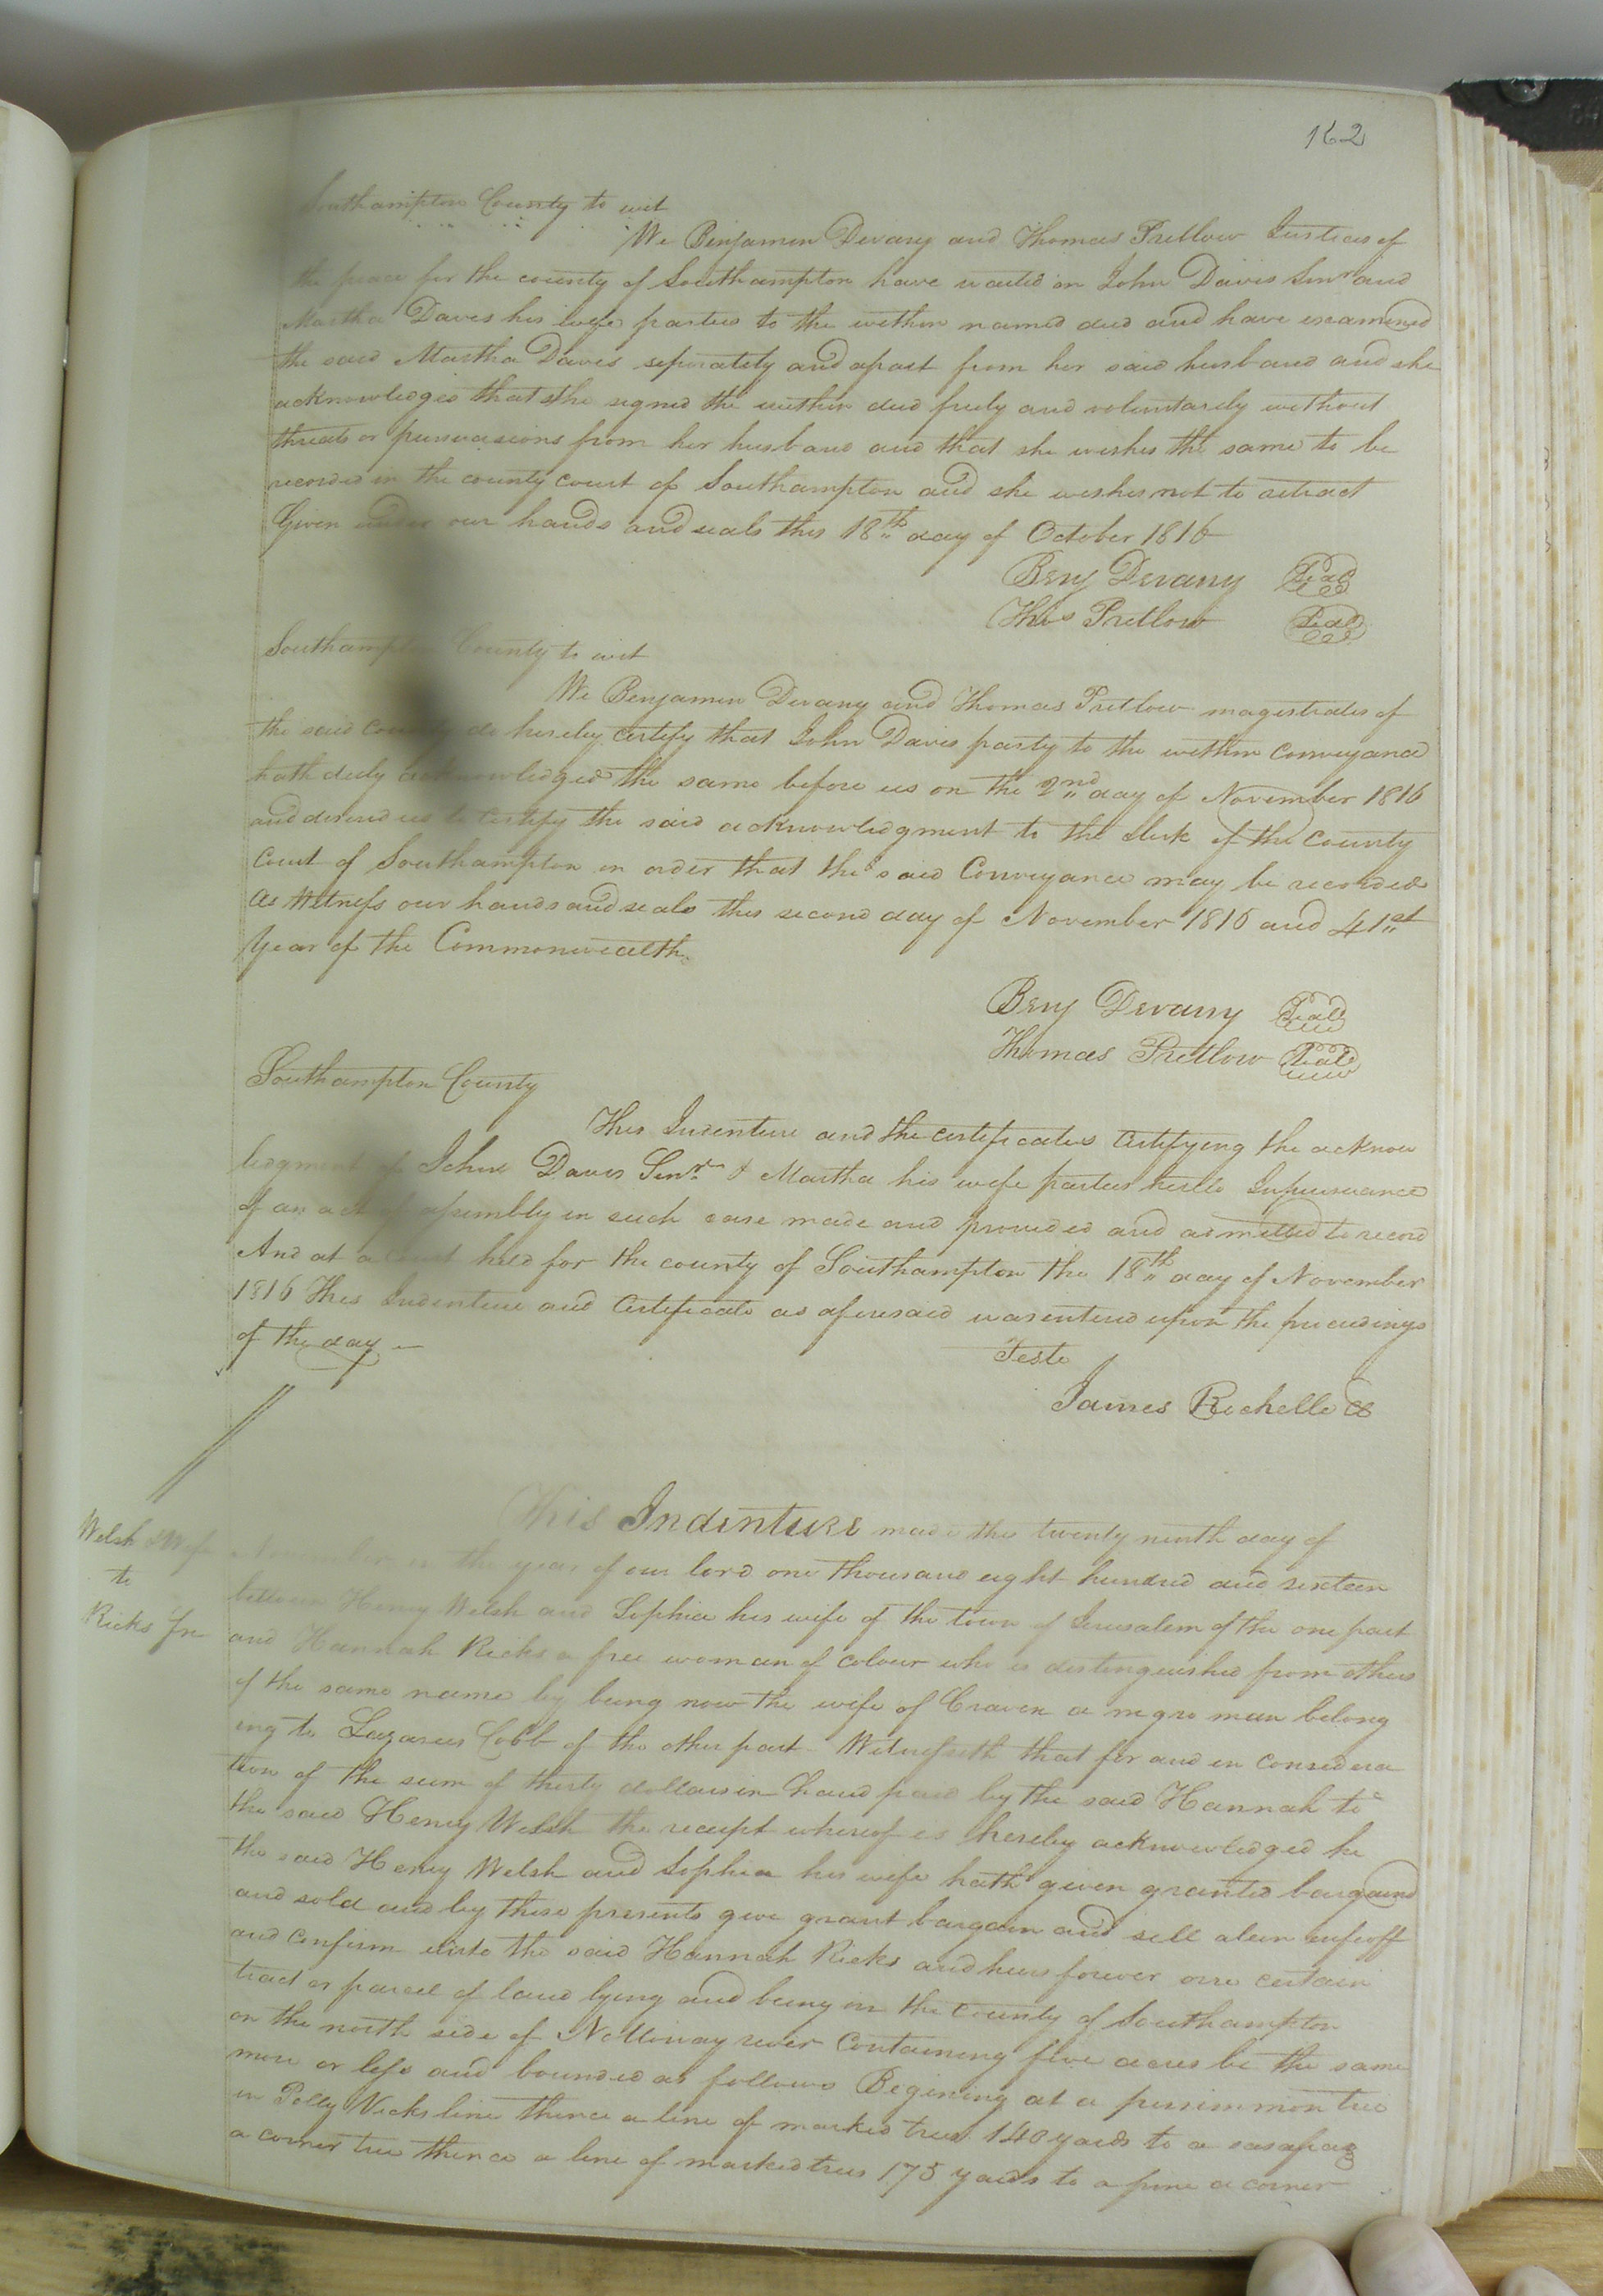 162
Southampton County to wit
We Benjamin Devany and Thomas Pretlow Justices of
the peace for the county of Southampton have waited on John Davis Senr and
Martha Daves his wife parties to the within named deed and have examined
the said Martha Daves seperately and apart from her said husband and she
acknowledges that she signed the within deed freely and voluntarely without
threats or pursuasions from her husband and that she wishes the same to be
recorded in the county court of Southampton and she wishes not to retract
Given under our hands and seals this 18th day of October 1816
Benj Devany Seal
Thos Pretlow Seal
Southampton County to wit
We Benjamin Devany and Thomas Pretlow magistrates of
the said county do hereby certify that John Davis party to the within conveyance
hath duly acknowledged the same before us on the 2nd day of November 1816
and desired us to certify the said acknowledgment to the clerk of the County
Court of Southampton in order that the said Conveyance may be recorded
As Witness our hands and seals this second day of November 1816 and 41st
Year of the Commonwealth
Benj Devany Seal
Thomas Pretlow Seal
Southampton County
This Indenture and the certificates Certifying the acknow
ledgment of John Daves Senr & Martha his wife parties hereto Inpursuance
of an act of assembly in such case made and provided and admitted to record
And at a Court held for the county of Southampton the 18th day of November
1816 This Indenture and Certificate as aforesaid was entered upon the proceedings
of the day
Teste
James Rochelle CS
Welsh & Wife
to
Ricks fn
This Indenture made this twenty ninth day of
November in the year of our lord one thousand eight hundred and sixteen
between Henry Welsh and Sophia his wife of the town of Jerusalem of the one part
and Hannah Ricks a free woman of colour who is distinguished from others
of the same name by being now the wife of Craven a negro man belong
ing to Lazarus Cobb of the other part Witnesseth that for and in considera
tion of the sum of thirty dollars in hand paid by the said Hannah to
the said Henry Welsh the receipt whereof is hereby acknowledged he
the said Henry Welsh and Sophia his wife hath given granted bargained
and sold and by these presents give grant bargain and sell alien enfeoff
and confirm unto the said Hannah Ricks and heirs forever one certain
tract or parcel of land lying and being in the County of Southampton
on the north side of Nottoway river Containing five acres be the same
more or less and bounded as follows Begining at a persimmon tree
in Polly Vicks line thence a line of marked trees 140 yards to a sasafras
a corner tree thence a line of marked trees 175 yards to a pine a corner